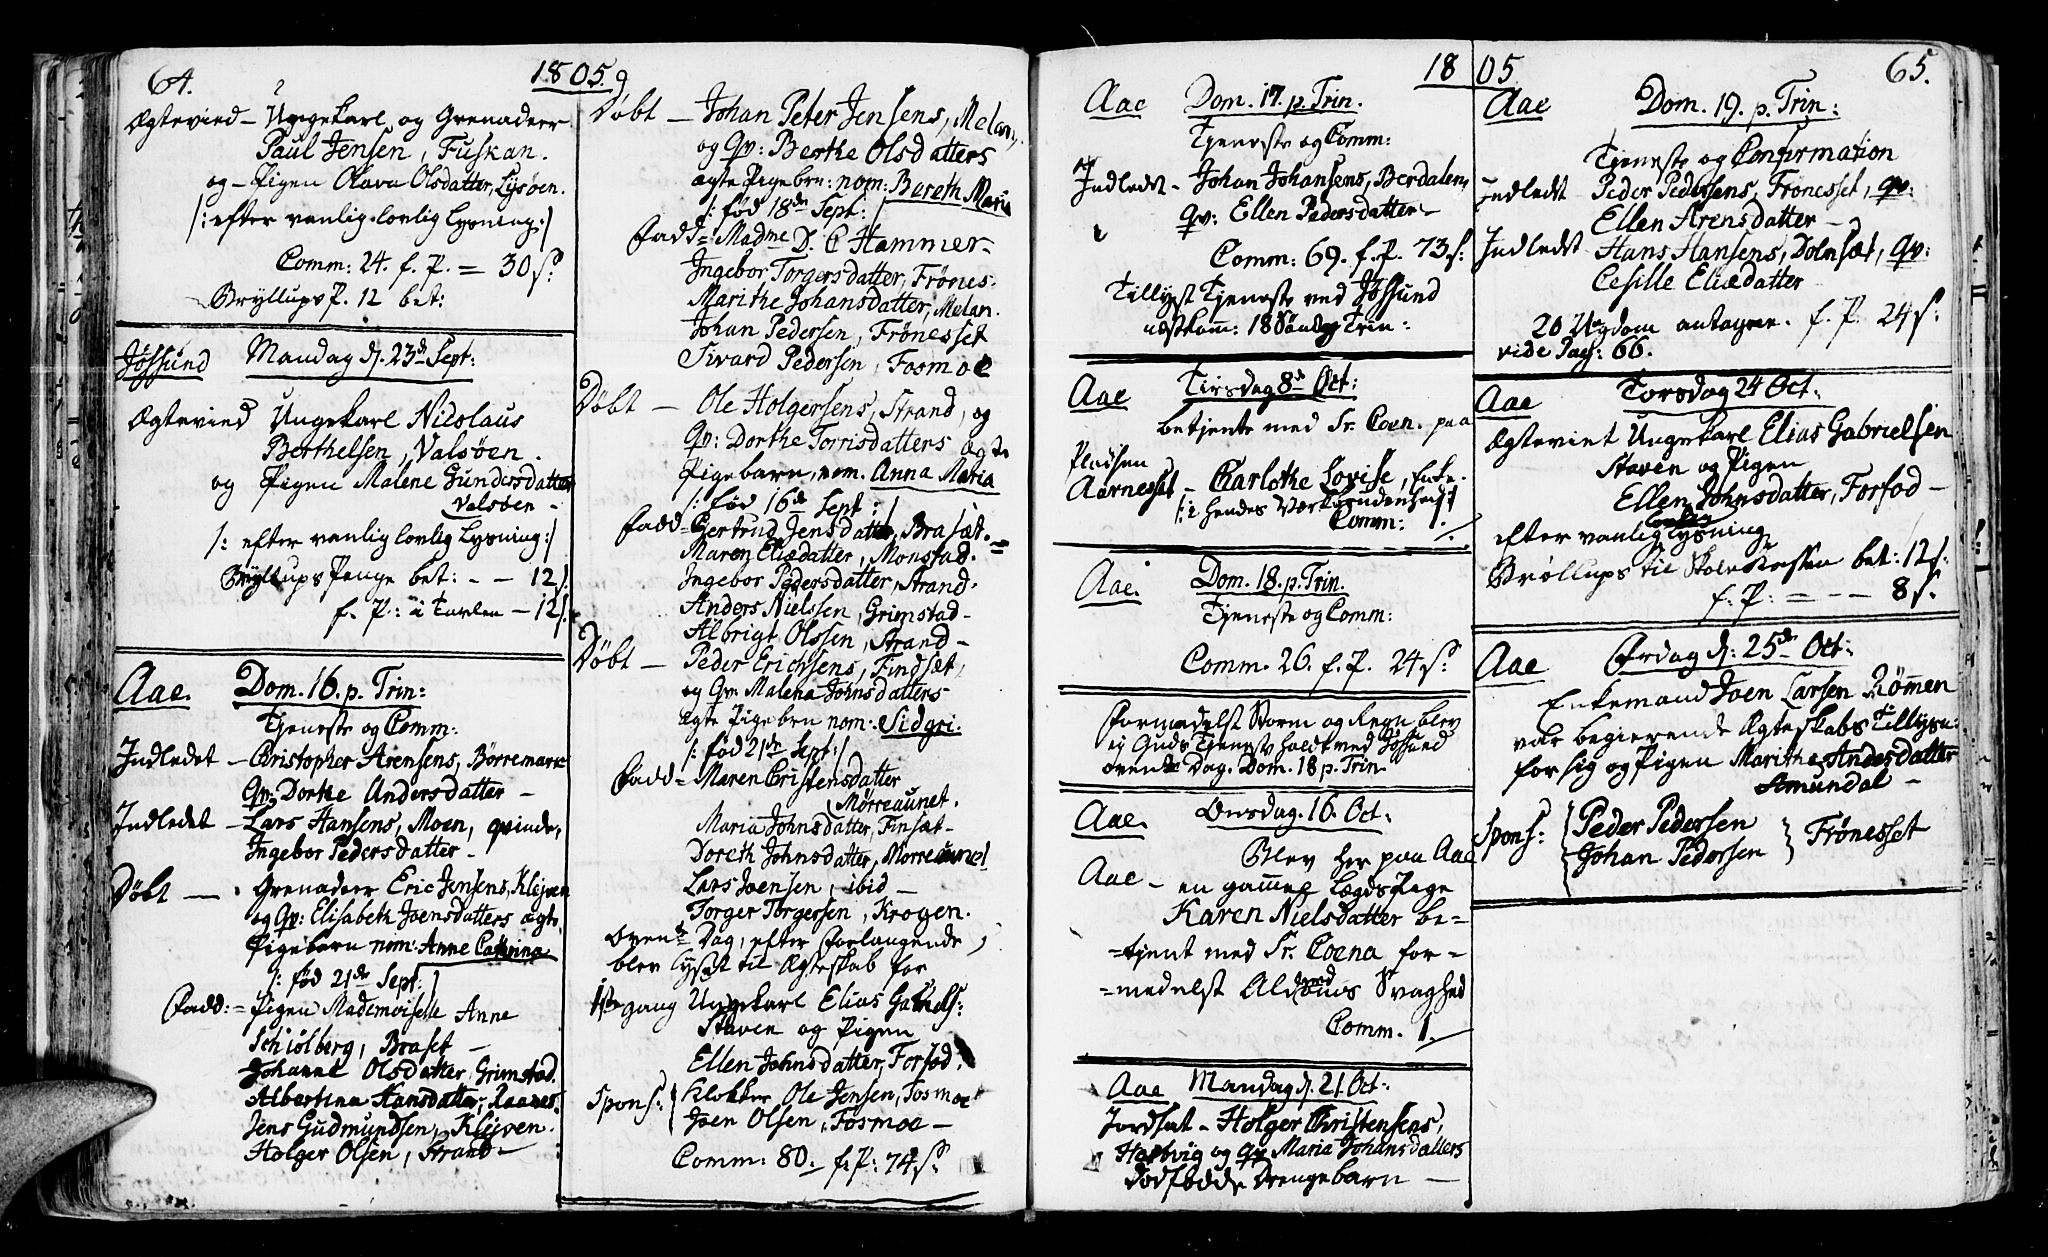 64.
1805
Ægtevied – Ungekarl og Grenadeer
Paul Jensen, Fuskan.
og – Pigen Olava Olsdatter, Lysøen.
/: efter vanlig lovlig Lysning :/
Comm: 24. f. P. = 30 s.
Bryllups P. 12 bet:
Jössund Mandag d. 23de Sept:
Ægtevied Ungekarl Nicolaus
Berthelsen, Valsøen.
og Pigen Malene Gundersdatter
Valsøen –
/: efter vanlig lovlig Lysning :/
Bryllups Penge bet: - - 12 s.
f. P.: i Tavlen – 12 s.
Aae. Dom. 16. p. Trin:
Tjeneste og Comm:
Indledet – Christopher Arensens, Börremark
Qv: Dorthe Andersdatter –
Indledet – Lars Hansens, Moen, qvinde,
Ingebor Pedersdatter –
Döbt – Grenadeer Eric Jensens, Klejven
og Qv: Elisabeth Joensdatters ægte
Pigebarn nom: Anne Cathrina
/: fød 21de Sept: /
Fadd: = Pigen Mademoiselle Anne
Schiölberg, Braset –
Johanne Olsdatter, Grimstad.
Albertina Hansdatter,
Jens Gudmundsen, Klejven.
Holger Olsen, Strand –
Döbt – Johan Peter Jensens, Melan,
og Qv: Berthe Olsdatters
ægte Pigebrn: nom: Bareth Maria
/: fød 18de Sept: /
Fadd = Madme D. C Hammer –
Ingebor Torgersdatter, Frönes-
Marithe Johansdatter, Melan.
Johan Pedersen, Frönesset
Sivard Pedersen, Fosmoe
Döbt – Ole Holgersens, Strand, og
Qv: Dorthe Torrisdatters ægte
Pigebarn, nom. Anna Maria
/: fød 16de Sept: /
Fadd = Gertrud Jensdatter, Brasæt. =
Maren Eliædatter, Monstad.
Ingebor Pedersdatter, Strand.
Anders Nielssen, Grimstad –
Albrigt Olssen, Strand –
Döbt – Peder Erichsens, Findsæt,
og Qv. Malena Johnsdatters
ægte Pigebrn nom: Sidgri.
/: fød 21de Sept: /
Fadd = Maren Cristensdatter
Mörreaunet.
Maria Johnsdatter, Finsæt –
Doreth Johnsdatter, Mörreaunet
Lars Joensen, ibid –
Torger Torgersen, Krogen.
Ovente Dag, efter Forlangende,
blev lyset til Ægteskab for
1ste gang Ungekarl Elias Gabriels:
Staven og Pigen
Ellen Johnsdatter, Forsod.
Spons: Klokker Ole Jensen, Fosmoe
Joen Olsen, Fosmoe –
Comm: 80. f. P: 74 s.
1805
65.
Aae Dom. 17. p. Trin.
Tjeneste og Comm:
Indledet – Johan Johansens, Berdalen,
Qv: Ellen Pedersdatter –
Comm: 69. f. P. 73 s:
Tillyst Tjeneste ved Jössund
næstkom: 18 Söndag Trin:
Aae Tirsdag 8de Oct:
betjente med Sr. Coen. paa
Pladsen
Aarnesset – Charlothe Lovise, Enke.
/: i hendes Værkbrudenhed :/
Comm: 1.
Aae. Dom. 18. p. Trin.
Tjeneste og Comm:
Comm. 26. f. P. 24 s.
Formedelst Storm og Regn blev
ej Guds Tjeneste holdt ved Jössund
ovente Dag. Dom. 18 p. Trin
Aae. Onsdag. 16. Oct:
Blev her paa Aae
Aae – en gammel Lægds Pige
Karen Nielsdatter be-
-tjent med Sr. Coena for-
-medelst Alderdoms Svaghed
Comm. 1.
Aae Mandag d. 21. Oct:
Jordsat – Holger Christensens,
Hasbvig og Qv Maria Johansdatters
dødfødde Drengebarn –
Aae Dom. 19. p. Trin:
Tjeneste og Confirmation
Indledet Peder Pedersens, Fronesset, Qv:
Ellen Arensdatter –
Indledet – Hans Hansens, Dolmsæt, Qv:
Cesille Eliædatter
20 Ungdom antagne. f. P. 24 s:
vide Pag: 66.
Aae Torsdag 24 Oct:
Ægteviet Ungekarl Elias Gabrielsen
Staven og Pigen
Ellen Johnsdatter, Forsod –
efter vanlig lovlig Lysning
Bröllups til Skolekassen bet: 12 s:
f. P: = – – 8 s.
Aae Fredag d: 25de Oct:
Enkemand Joen Larsen Römmen
var begierende Ægteskabs Tillysn:
for sig og Pigen Marithe Andersdatter
Amundal –
Spons: Peder Pedersen
Johan Pedersen Frönesset